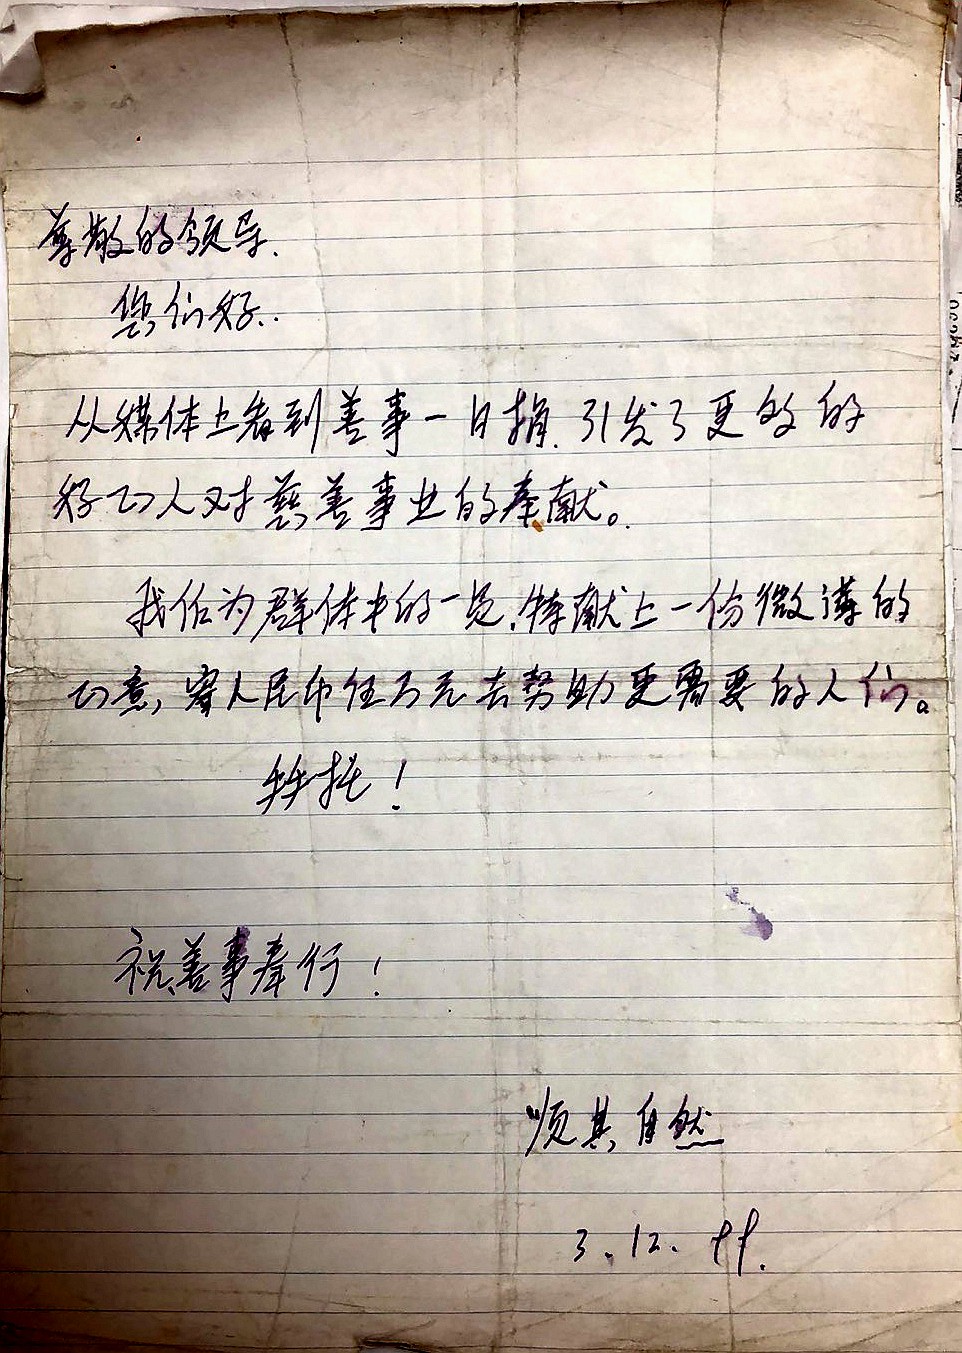 尊敬的领导.
您们好..
从媒体上看到善事一日捐，引发了更多的
好心人对慈善事业的奉献。
我作为群体中的一员，特献上一份微薄的
心意，寄人民币伍万元去帮助更需要的人们。
拜托！
祝善事奉行！
顺其自然
3.12.99.